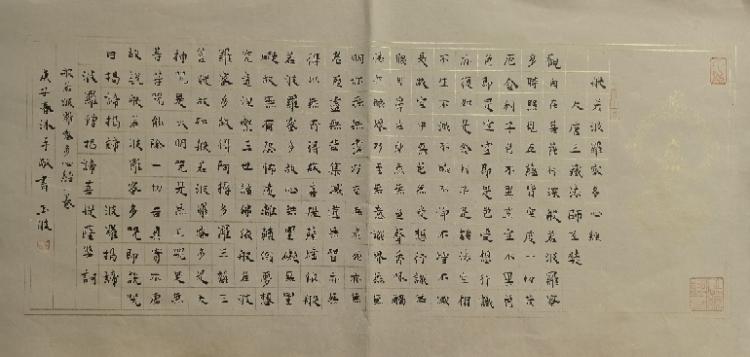 般若波羅蜜多心經
大唐三藏法師玄奘
觀自在菩薩行深般若波羅蜜
多時照見五蘊皆空度一切苦
厄舍利子色不異空空不異色
色即是空空即是色受想行識
亦復如是舍利子是諸法空相
不生不滅不垢不淨不增不減
是故空中無色無受想行識無
眼耳鼻舌身意無色聲香味觸
法無眼界乃至無意識界無無
明亦無無明盡乃至無老死亦無
老死盡無苦集滅道無智亦無
得以無所得故菩提薩埵依般
若波羅蜜多故心無罣礙無罣
礙故無有恐怖遠離顛倒夢想
究竟涅槃三世諸佛依般若波
羅蜜多故得阿耨多羅三藐三
菩提故知般若波羅蜜多是大
神咒是大明咒是無上咒是無
等等咒能除一切苦真實不虛
故說般若波羅蜜多咒即說咒
曰揭諦揭諦 波羅揭諦
波羅僧揭諦菩提薩婆訶
般若波羅蜜多心經
庚子春沐手敬書